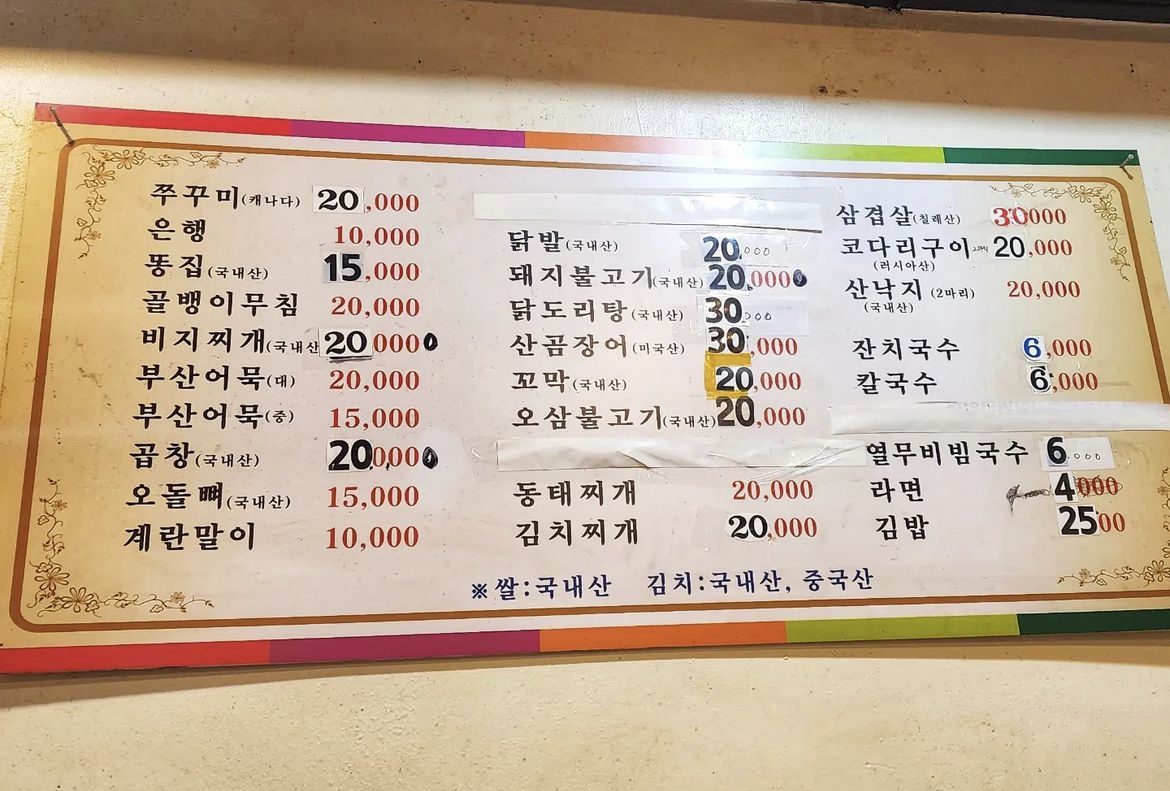 쭈꾸미(캐나다) 20,000
은행 10,000
똥집(국내산) 15,000
골뱅이무침 20,000
비지찌개(국내산 20000
부산어묵(대) 20,000
부산어묵(중) 15,000
곱창(국내산) 20,000
오돌뼈(국내산) 15,000
계란말이 10,000
닭발(국내산) 20.000
돼지불고기(국내산) 20,000
닭도리탕(국내산) 30.000
산곰장어(미국산) 30,000
꼬막(국내산) 20,000
오삼불고기(국내산) 20,000
동태찌개 20,000
김치찌개 20,000
삼겹살(칠레산) 30000
코다리구이 20,000
(러시아산)
산낙지(2마리) 20,000
(국내산)
잔치국수 6,000
칼국수 6,000
열무비빔국수 6.000
라면 4000
김밥 2500
※쌀:국내산 김치:국내산, 중국산